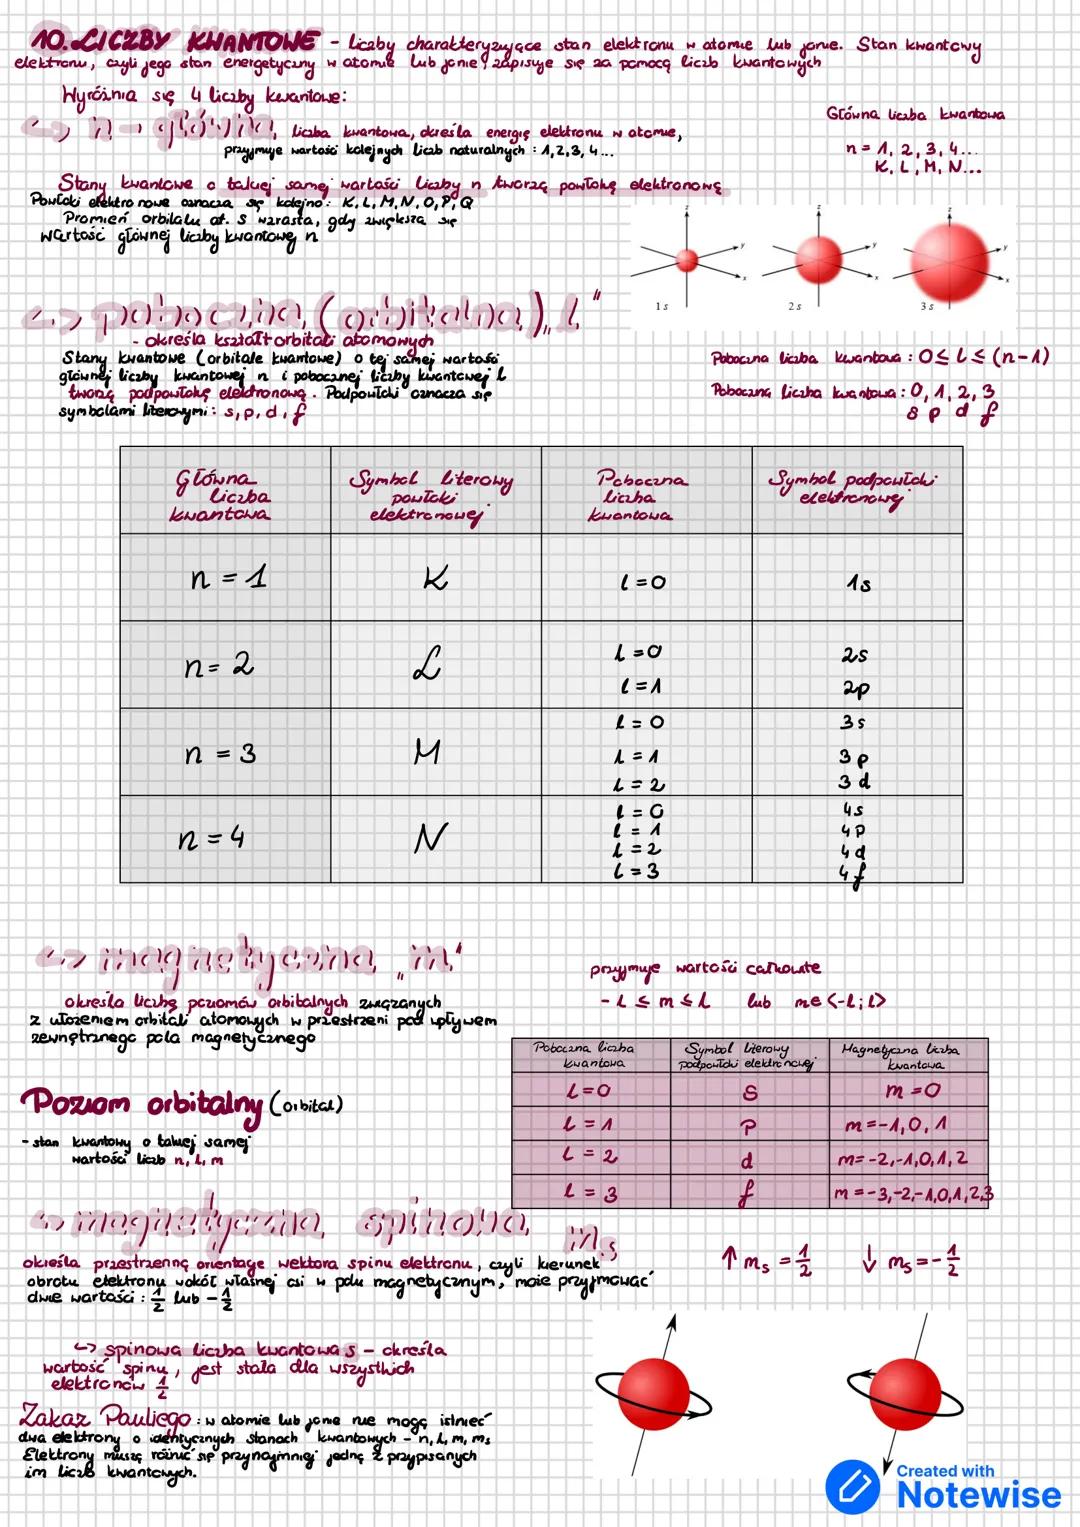 10. LICZBY KWANTOWE - liczby charakteryzujące stan elektronu w atomie lub jonie. Stan kwantowy
elektronu, czyli jego stan energetyczny w atomie lub jonie, zapisuje się za pomocą liczb kwantowych
Wyróżnia się 4 liczby kwantowe:
↳ n - główna, liczba kwantowa, określa energię elektronu w atomie,
przyjmuje wartości kolejnych liczb naturalnych : 1,2,3, 4...
Główna liczba kwantowa
n = 1, 2, 3, 4...
K, L, M, N...
Stany kwantowe o takiej samej wartości liczby n tworzą powłokę elektronową
Powłoki elektronowe oznacza się kolejno: K, L, M, N, O, P, Q
Promień orbitalu at. s wzrasta, gdy zwiększa się
wartość głównej liczby kwantowej n
z y x
z y x
z y x
1 s
2 s
3 s
↳ poboczna, (orbitalna), „l"
- określa kształt orbitali atomowych
Stany kwantowe (orbitale kwantowe) o tej samej wartości
głównej liczby kwantowej n i pobocznej liczby kwantowej l
tworzą podpowłokę elektronową. Podpowłoki oznacza się
symbolami literowymi : s, p, d, f
Poboczna liczba kwantowa : 0 ≤ l ≤ (n-1)
Poboczna liczba kwantowa : 0, 1, 2, 3
s p d f
Główna liczba kwantowa
Symbol literowy powłoki elektronowej
Poboczna liczba kwantowa
Symbol podpowłoki elektronowej
n = 1
K
l = 0
1s
n = 2
L
l = 0
2s
l = 1
2p
n = 3
M
l = 0
3s
l = 1
3p
l = 2
3d
n = 4
N
l = 0
4s
l = 1
4p
l = 2
4d
l = 3
4f
↳ magnetyczna, „m"
określa liczbę poziomów orbitalnych związanych
z ułożeniem orbitali atomowych w przestrzeni pod wpływem
zewnętrznego pola magnetycznego
przyjmuje wartości całkowite
- l ≤ m ≤ l lub m∈<-l; l>
Poboczna liczba kwantowa
Symbol literowy podpowłoki elektronowej
Magnetyczna liczba kwantowa
l = 0
s
m = 0
l = 1
p
m = -1, 0, 1
l = 2
d
m = -2, -1, 0, 1, 2
l = 3
f
m = -3, -2, -1, 0, 1, 2, 3
Poziom orbitalny (orbital)
- stan kwantowy o takiej samej
wartości liczb n, l, m
↳ magnetyczna spinowa, ms
określa przestrzenną orientację wektora spinu elektronu, czyli kierunek
obrotu elektronu wokół własnej osi w polu magnetycznym, może przyjmować
dwie wartości : 1/2 lub - 1/2
↑ ms = 1/2
↓ ms = - 1/2
↳ spinowa liczba kwantowa s - określa
wartość spinu, jest stała dla wszystkich
elektronów 1/2
Zakaz Pauliego : w atomie lub jonie nie mogą istnieć
dwa elektrony o identycznych stanach kwantowych - n, l, m, ms
Elektrony muszą różnić się przynajmniej jedną z przypisanych
im liczb kwantowych.
Created with
Notewise